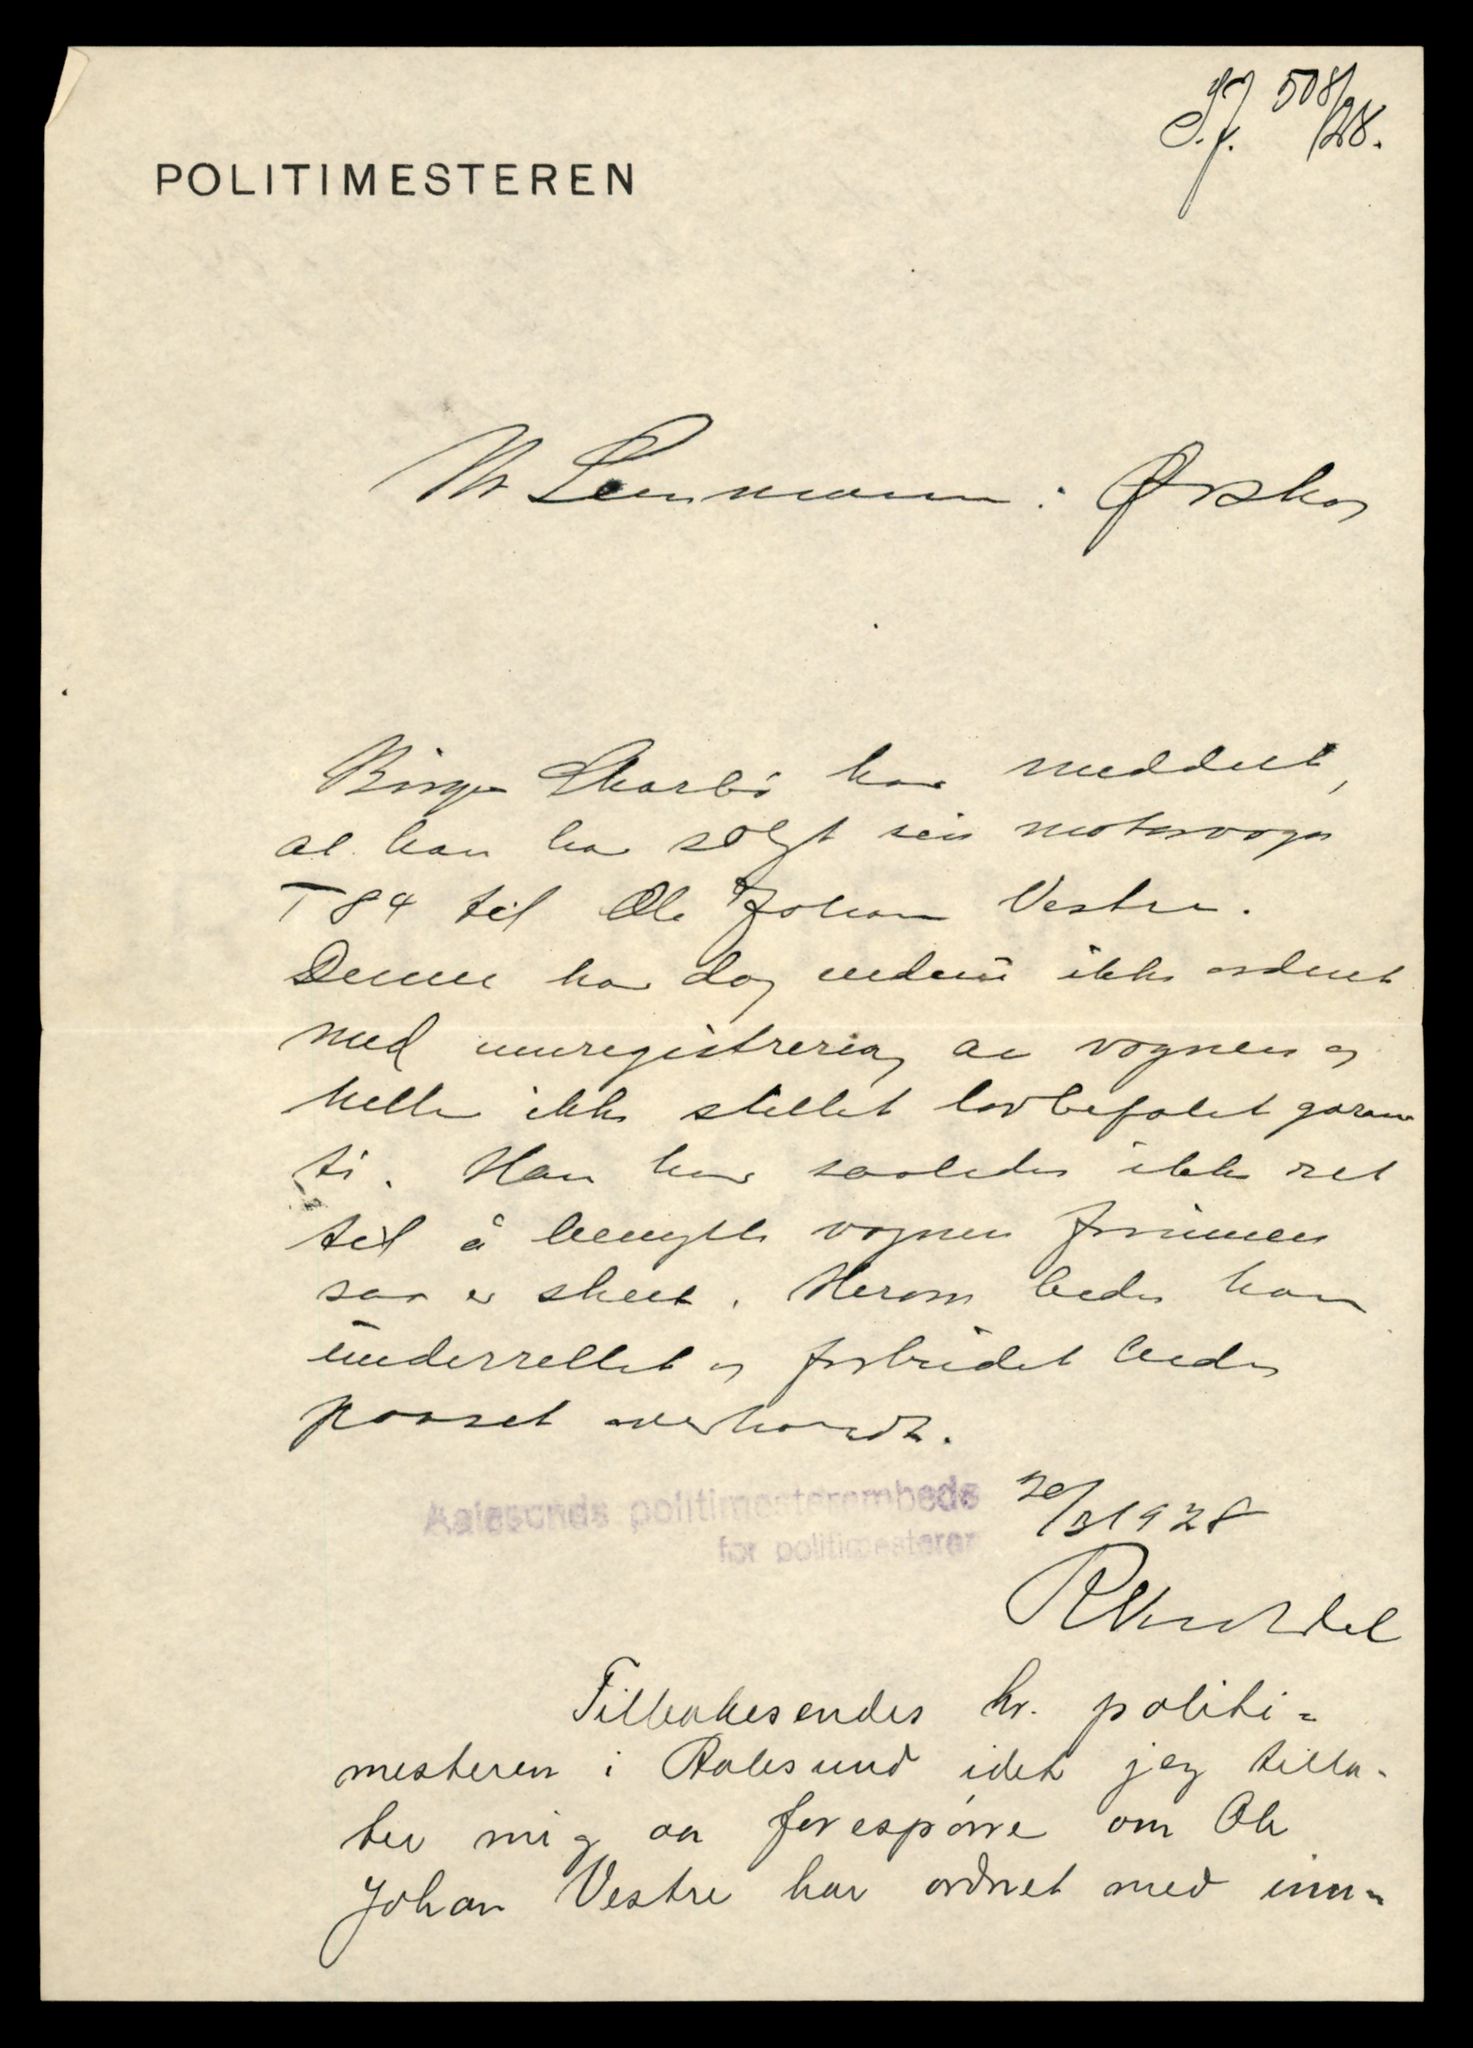 S.J. 508/28.
POLITIMESTEREN
Hr Lensmannen i Ørskog
Birger Skarbö har meddelt,
at han har solgt sin motorvogn
T 84 til Ole Johan Vestre.
Denne har dog endnu ikke ordnet
med innregistrering av vognen og
heller ikke stillet lovbefalet garan
ti. Han har saaledes ikke ret
til å benytte vognen forinnen
saa er skeet. Herom bedes han
underrettet og forbudet bedes
paaset overholdt.
Aalesunds politimesterembede 20/3 1928
for politimesteren
Tilbakesendes hr. politi=
mesteren i Aalesund idet jeg tilla-
ter mig aa forespörre om Ole
Johan Vestre har ordnet med inn-